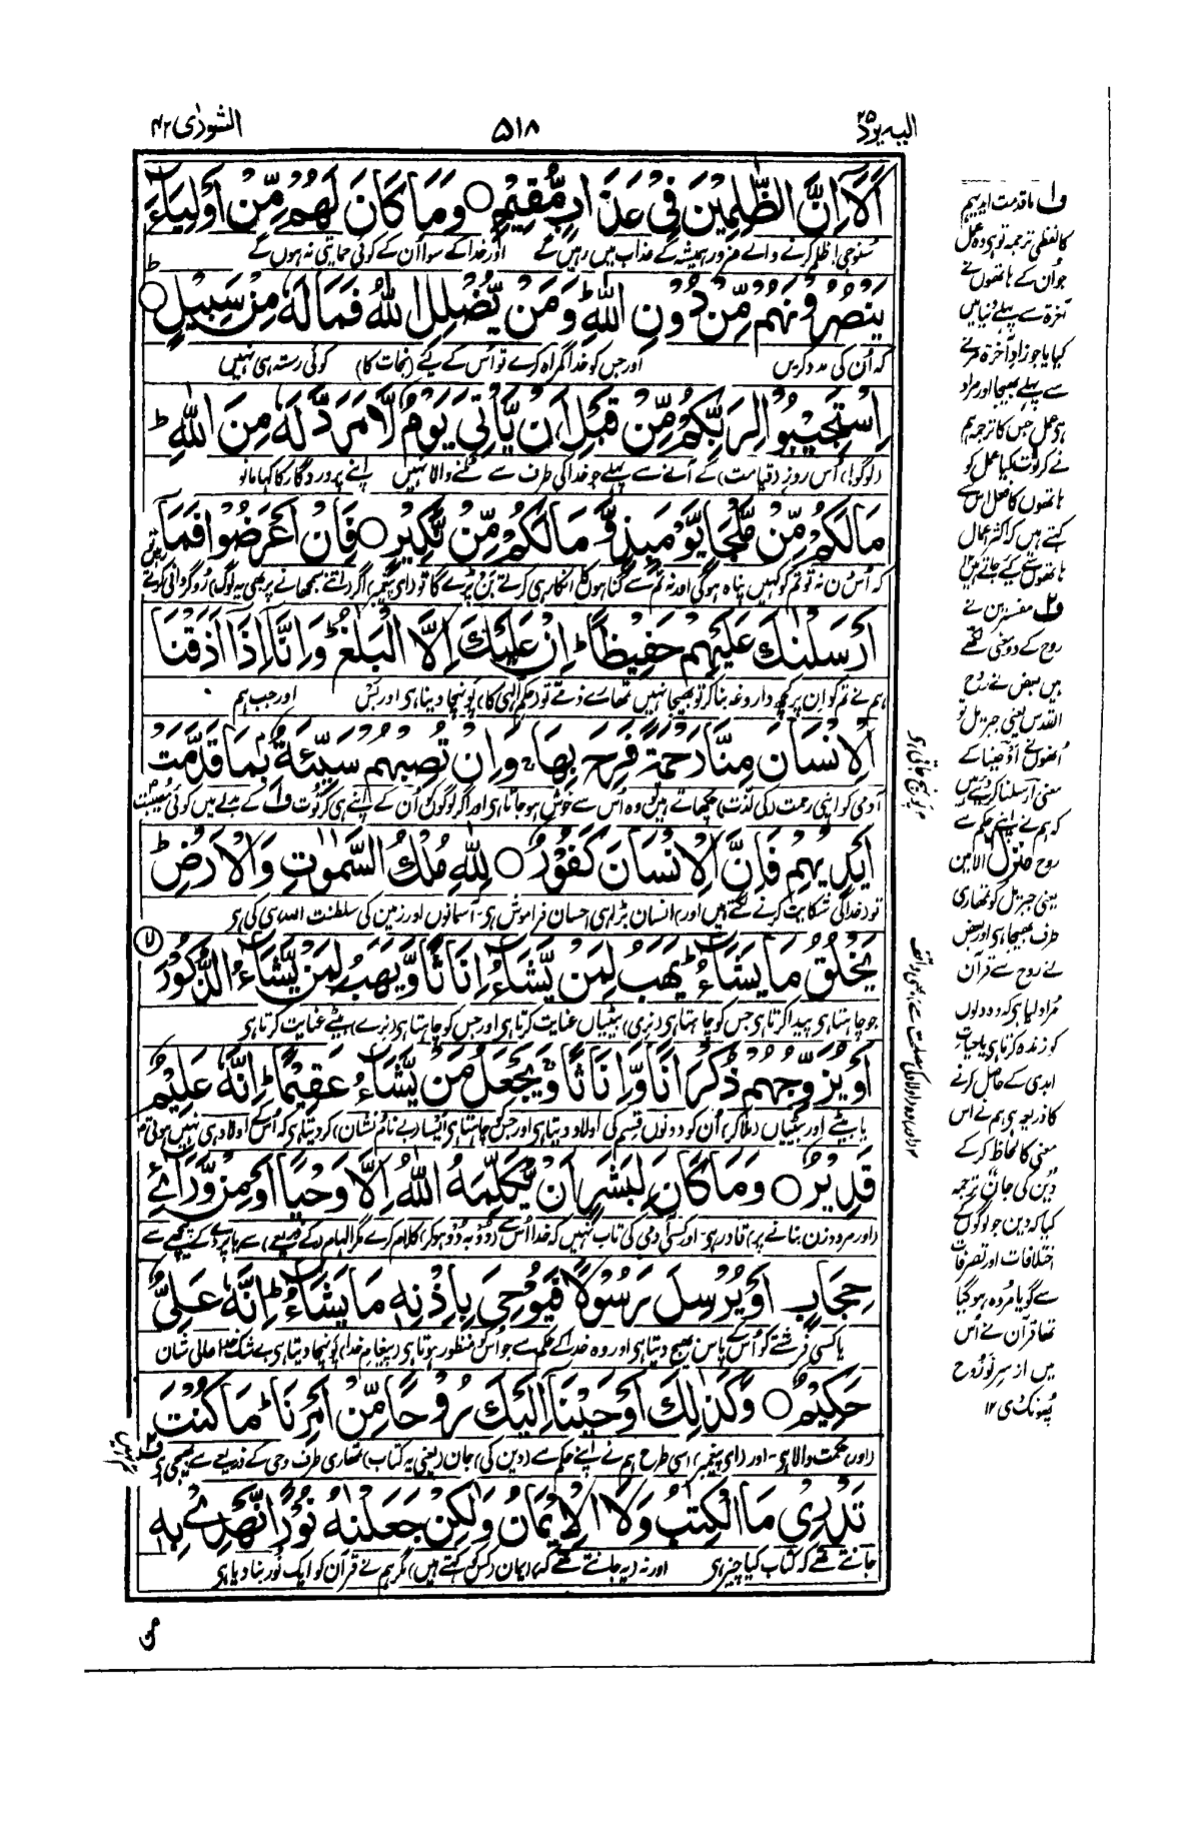 الیہ یرد ۲۵
۵۱۸
الشورٰی ۴۲
اَلَآ اِنَّ الظّٰلِمِیْنَ فِیْ عَذَابٍ مُّقِیْمٍ ○ وَمَا كَانَ لَهُمْ مِّنْ اَوْلِیَآءَ
سنو جی! ظلم کرنے والے ضرور ہمیشہ کے عذاب میں رہیں گے اور خدا کے سوا ان کے کوئی حمایتی نہ ہوں گے
یَنْصُرُوْنَهُمْ مِّنْ دُوْنِ اللّٰهِ ؕ وَمَنْ یُّضْلِلِ اللّٰهُ فَمَا لَهٗ مِنْ سَبِیْلٍ ○
کہ اُن کی مدد کریں اور جس کو خدا گمراہ کرے تو اُس کے لیے (نجات کا) کوئی رستہ ہی نہیں
اِسْتَجِیْبُوْا لِرَبِّكُمْ مِّنْ قَبْلِ اَنْ یَّاْتِیَ یَوْمٌ لَّا مَرَدَّ لَهٗ مِنَ اللّٰهِ ؕ
(لوگو!) اُس روز (قیامت) کے آنے سے پہلے جو خدا کی طرف سے ٹلنے والا نہیں اپنے پروردگار کا کہا مانو
مَا لَكُمْ مِّنْ مَّلْجَاٍ یَّوْمَىِٕذٍ وَّمَا لَكُمْ مِّنْ نَّكِیْرٍ ○ فَاِنْ اَعْرَضُوْا فَمَاۤ
کہ اُس دن نہ تو تم کو کہیں پناہ ہوگی اور نہ تم سے گناہوں کا انکار ہی کرتے بن پڑے گا تو (اے پیغمبر) اگر (اتنے سمجھانے پر بھی یہ لوگ) روگردانی کرتے
اَرْسَلْنٰكَ عَلَیْهِمْ حَفِیْظًا ؕ اِنْ عَلَیْكَ اِلَّا الْبَلٰغُ ؕ وَاِنَّاۤ اِذَاۤ اَذَقْنَا
ہم نے تم کو ان پر کچھ داروغہ بنا کر تو بھیجا نہیں تمھارے ذمے تو (حکم الٰہی کا) پونہچا دینا ہی اور بس اور جب ہم
الْاِنْسَانَ مِنَّا رَحْمَةً فَرِحَ بِهَا ۚ وَاِنْ تُصِبْهُمْ سَیِّئَةٌۢ بِمَا قَدَّمَتْ
آدمی کو اپنی رحمت (کی لذت) چکھاتے ہیں وہ اُس سے خوش ہو جاتا ہی اور اگر لوگوں کو اُن کے اپنے ہی کرتوت ف۱ کے بدلے میں کوئی مصیبت
اَیْدِیْهِمْ فَاِنَّ الْاِنْسَانَ كَفُوْرٌ ○ لِلّٰهِ مُلْكُ السَّمٰوٰتِ وَالْاَرْضِ ؕ
تو (خدا کی شکایت کرنے لگتے ہیں اور) انسان بڑا ہی احسان فراموش ہی۔ آسمانوں اور زمین کی سلطنت اللہ ہی کی ہی
یَخْلُقُ مَا یَشَآءُ ؕ یَهَبُ لِمَنْ یَّشَآءُ اِنَاثًا وَّیَهَبُ لِمَنْ یَّشَآءُ الذُّكُوْرَ
جو چاہتا ہی پیدا کرتا ہی جس کو چاہتا ہی (نری) بیٹیاں عنایت کرتا ہی اور جس کو چاہتا ہی (نرے) بیٹے عنایت کرتا ہی
اَوْ یُزَوِّجُهُمْ ذُكْرَانًا وَّاِنَاثًا ۚ وَیَجْعَلُ مَنْ یَّشَآءُ عَقِیْمًا ؕ اِنَّهٗ عَلِیْمٌ
یا بیٹے اور بیٹیاں (ملا کر) اُن کو دونوں قسم کی اولاد دیتا ہی اور جس کو چاہتا ہی (ایسا بے نام نشان) کر دیتا ہی کہ اُس کے اولاد ہی نہیں ہوتی
قَدِیْرٌ ○ وَمَا كَانَ لِبَشَرٍ اَنْ یُّكَلِّمَهُ اللّٰهُ اِلَّا وَحْیًا اَوْ مِنْ وَّرَآئِ
(اور مرد و زن بنانے پر) قادر ہی۔ اور کسی آدمی کی تاب نہیں کہ خدا اُس سے (دو بہ دو ہو کر) کلام کرے مگر الہام (کے ذریعے) سے یا پردے کے پیچھے سے
حِجَابٍ اَوْ یُرْسِلَ رَسُوْلًا فَیُوْحِیَ بِاِذْنِهٖ مَا یَشَآءُ ؕ اِنَّهٗ عَلِیٌّ
یا کسی فرشتے کو اُس کے پاس بھیج دیتا ہی اور وہ خدا کے حکم سے جو اُس کو منظور ہوتا ہی (پیغام خدا) پونہچا دیتا ہی بے شک خدا عالی شان
حَكِیْمٌ ○ وَكَذٰلِكَ اَوْحَیْنَاۤ اِلَیْكَ رُوْحًا مِّنْ اَمْرِنَا ؕ مَا كُنْتَ
(اور) حکمت والا ہی۔ اور (اے پیغمبر) اسی طرح ہم نے اپنے حکم سے (دین کی) جان (یعنی یہ کتاب) تمھاری طرف وحی کے ذریعے سے بھیجی ہی
تَدْرِیْ مَا الْكِتٰبُ وَلَا الْاِیْمَانُ وَلٰكِنْ جَعَلْنٰهُ نُوْرًا نَّهْدِیْ بِهٖ
جانتے تھے کہ کتاب کیا چیز ہی اور نہ (یہ جانتے تھے کہ) ایمان (کس کو کہتے ہیں) مگر ہم نے قرآن کو ایک نور بنا دیا ہی
ف۱ ما قدمت ایدیہم
کا لفظی ترجمہ تو ہی وہ عمل
جو اُن کے ہاتھوں نے
آخرۃ سے پہلے دنیا میں
کیا یا جو زاد آخرۃ مرنے
سے پہلے بھیجا اور مراد
ہی عمل جس کا ترجمہ ہم
نے کرتوت کیا عمل کو
ہاتھوں کا فعل اس لئے
کہتے ہیں کہ اکثر اعمال
ہاتھوں سے کیے جاتے ہیں ۱۲
ف۲ مفسرین نے
روح کے دو معنی لکھے
ہیں بعض نے روح
القدس یعنی جبریل تو
اُنھوں نے اَوْحَیْنَا کے
معنی اَرْسَلْنَا کر دیے ہیں
کہ ہم نے اپنے حکم سے
روح الامین
یعنی جبریل کو تمھاری
طرف بھیجا ہی اور بعض
نے روح سے قرآن
مراد لیا ہی کہ وہ دلوں
کو زندہ کرتا ہی یا حیات
ابدی کے حاصل کرنے
کا ذریعہ ہی ہم نے اس
معنی کا لحاظ کر کے
دین کی جان ترجمہ
کیا کہ دین جو لوگوں کے
اختلافات اور تصرفات
سے گویا مردہ ہو گیا
تھا قرآن نے اُس
میں از سر نو روح
پھونک دی ۱۲
پونہچ جاتی ہی